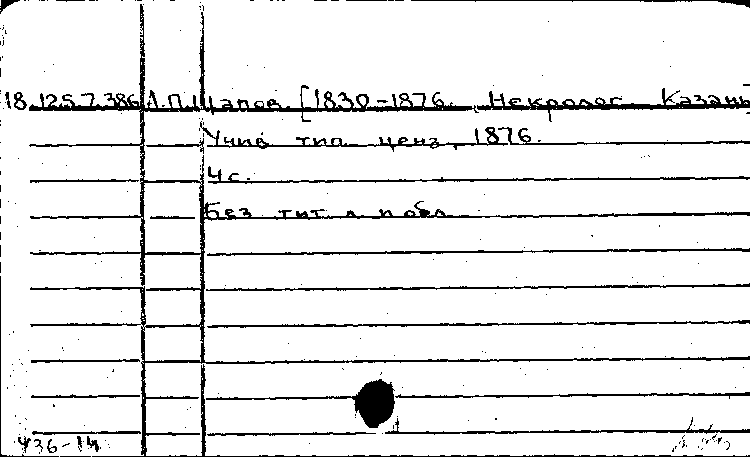 18.125.7.386 А.П.Щапов. [1830-1876. Некролог Казань
Унив тип. ценз., 1876.
4 с.
Без тит л и обл
У36-14